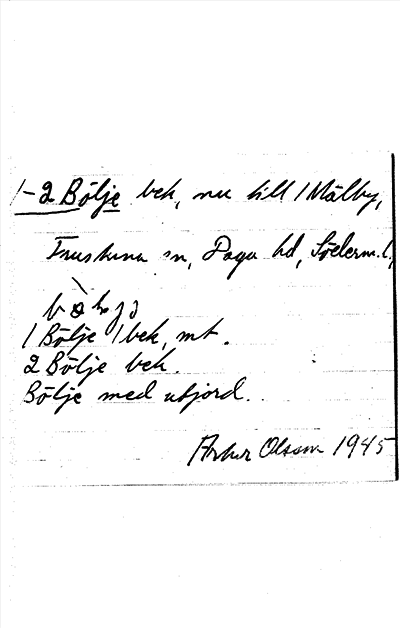 1-2 Bölje bek, nu till 1 Mälby,
Frustuna sn, Daga hd, Söderm.l,
1 Bölje 1 bek, mt.
2 Bölje bek.
Bölje med utjord.
Arthur Olsson 1945